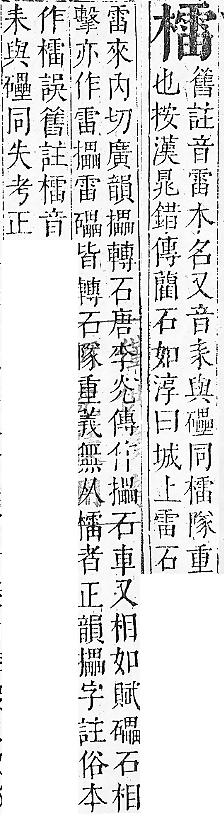 檑
舊註音雷木名又音耒與礧同檑隊重
也按漢晁錯傳藺石如淳曰城上雷石
雷來內切廣韻攂轉石唐李光傳作攂石車又相如賦礌石相
擊亦作雷攂雷礌皆轉石隊重義無从檑者正韻攂字註俗本
作檑誤舊註檑音
耒與礧同失考正